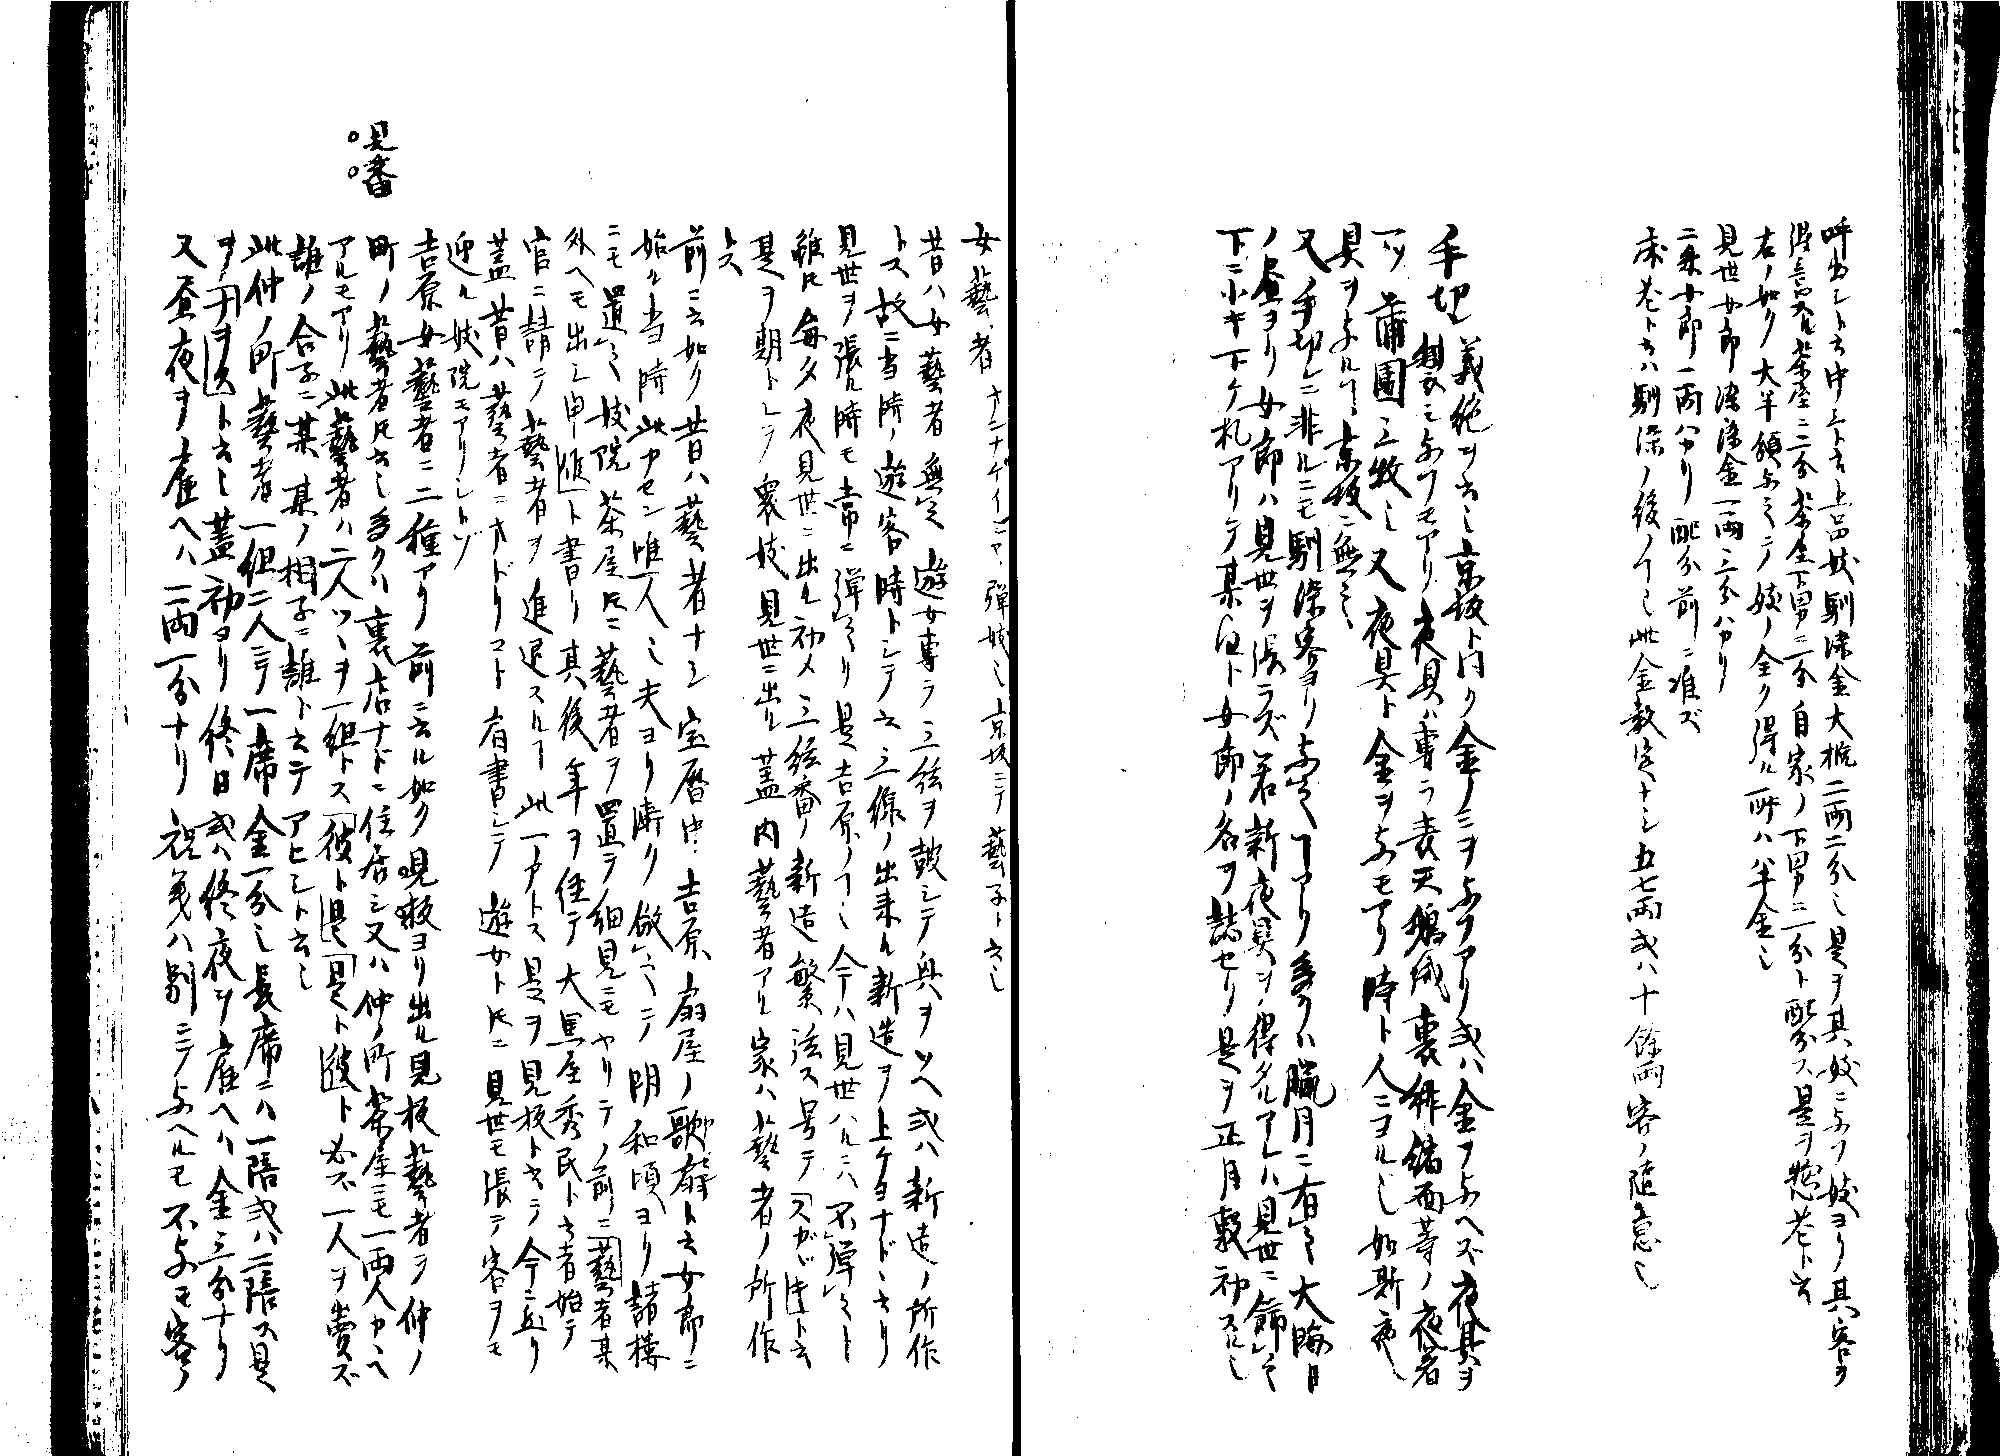 呼出シト云中ニト云上品妓馴染金大概二両二分也是ヲ其妓ニ与フ妓ヨリ其客ヲ
得意スル茶屋ニ二分茶屋下男ニ二分自家ノ下男ニ二分ト配分ス是ヲ惣花ト云
右ノ如ク大半頒与シテ妓ノ全ク得ル所ハ半金也
見世女郎馴染金一両三分バカリ
二朱女郎一両バカリ配分前ニ准ズ
床花ト云ハ馴染ノ後ノヿ也此金数定ナシ五七両或ハ十余両客ノ随意也
手切 義絶ヲ云也京坂ト同ク金ノミヲ与フアリ或ハ金ヲ与ヘズ夜具ヲ
製シ与フモアリ夜具ハ専ラ表天鵞絨裏緋縮緬等ノ夜着
一ツ蒲団三枚也又夜具ト金ヲ与モアリ時ト人ニヨル也如斯夜
具ヲ与ルヿ京坂ニ無之
又手切ニ非ルニモ馴染客ヨリ与之ヿアリ多クハ臘月ニ有之大晦日
ノ昼ヨリ女郎ハ見世ヲ張ラズ若新夜具ヲ得タルアレハ見世ニ飾之
下ニ小キ下ケ札アリテ某ヨリト女郎ノ名ヲ誌セリ是ヲ正月敷初スル也
女藝者 オンナゲイシヤ弾妓也京坂ニテ藝子ト云也
昔ハ女藝者無之遊女専ラ三絃ヲ鼓シテ興ヲソヘ或ハ新造ノ所作
トス故ニ当時ノ遊客時トシテ云三線ノ出来ル新造ヲ上ケヨナドヽ云リ
見世ヲ張ル時モ常ニ弾之リ是吉原ノヿ也今ハ見世ハルニハ不弾之ト
雖トモ毎夕夜見世ニ出ル初メ三絃番ノ新造繁絃ス号テスガヾキト云
是ヲ期トシテ衆妓見世ニ出ル蓋内藝者アル家ハ藝者ノ所作
トス
前ニ云如ク昔ハ藝者ナシ宝暦中吉原扇屋ノ歌扇ト云女郎ニ
始ル当時此カセン唯一人也夫ヨリ漸ク倣之テ明和頃ヨリ諸楼
ニモ置之妓院茶屋トモニ藝者ヲ置テ細見ニモヤリテノ前ニ藝者某
外ヘモ出シ申候ト書リ其後年ヲ経テ大黒屋秀民ト云者始テ
官ニ請テ藝者ヲ進退スルヿ此一戸トス是ヲ見板ト云ヲ今ニ至リ
蓋昔ハ藝者ニオドリコト肩書シテ遊女トトモニ見世モ張テ客ヲモ
迎ル妓院モアリシトゾ
吉原女藝者ニ二種アリ前ニ云ル如ク現板ヨリ出ル見板藝者ヲ仲ノ
町ノ藝者トモ云也多クハ裏店ナドニ住居シ又ハ仲ノ町茶屋ニモ一両人カヽヘ
アルモアリ此藝者ハ二人ツヽヲ一組トス彼ト是是ト彼ト必ズ一人ヲ売ズ
誰ノ合子ニ某某ノ相子ニ誰ト云テアヒシト云也
此仲ノ町藝者一組二人ニテ一席金一分也長席ニハ一陪或ハ二陪ス是
ヲ千ヲ送ト云也蓋初ヨリ終日或ハ終夜ヲ雇ヘハ金三分ナリ
又昼夜ヲ雇ヘハ一両一分ナリ祝義ハ別ニテ与ヘルモ不与モ客ノ
見番